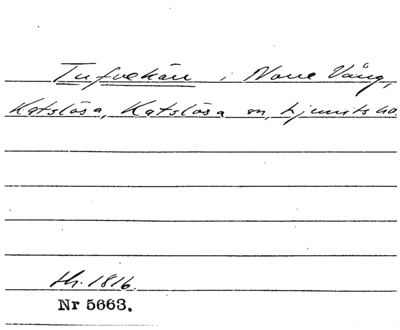 Tufvekärr i Norre Vång,
Katslösa, Katslösa sn, Ljunits hd.
th. 1816.
Nr 5663.